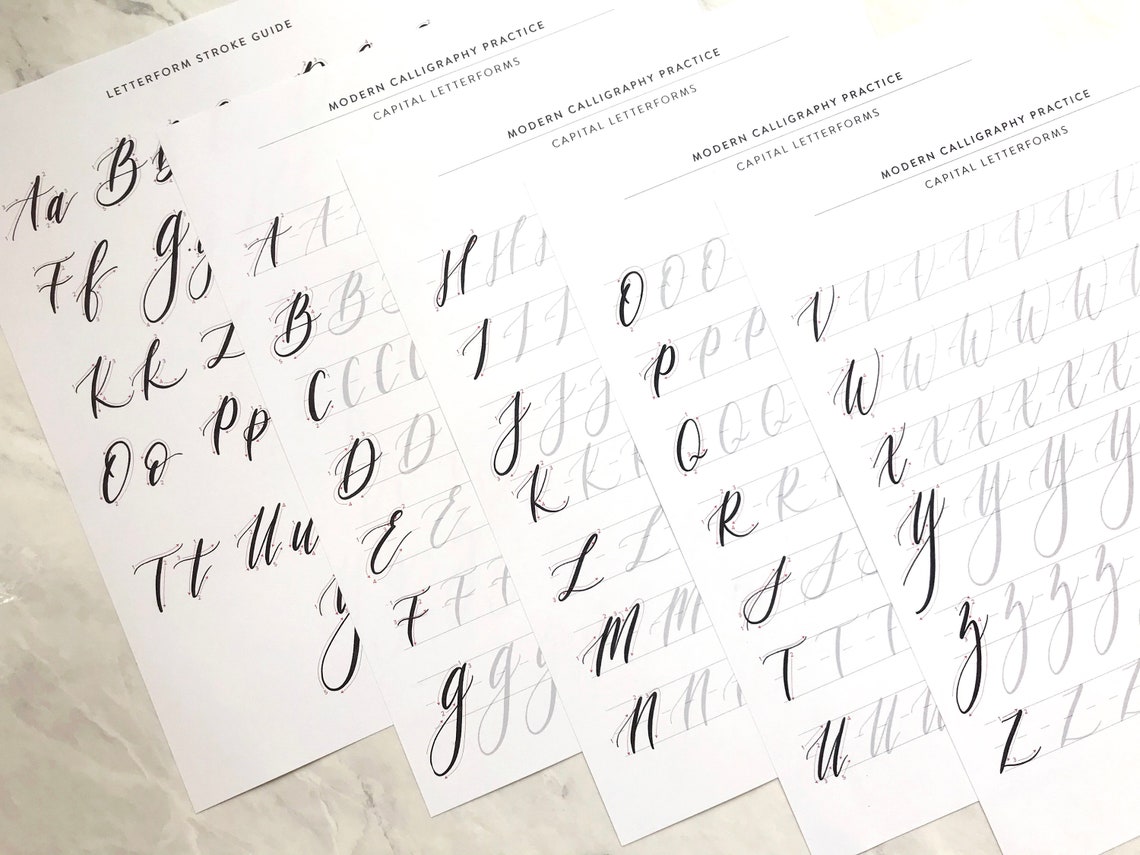 LETTERFORM STROKE GUIDE
Aa B
Ff G
Kk
Oo Pp
Tt Uu
y
MODERN CALLIGRAPHY PRACTICE
CAPITAL LETTERFORMS
A A A
B B B
C C C C
D D D
E E
F F F
G G G
MODERN CALLIGRAPHY PRACTICE
CAPITAL LETTERFORMS
H H H
I I I
J J J
K K K
L L
M M
N N N
MODERN CALLIGRAPHY PRACTICE
CAPITAL LETTERFORMS
O O O
P P P
Q Q Q
R R
S S S
T T T
U U U
MODERN CALLIGRAPHY PRACTICE
CAPITAL LETTERFORMS
V V V V V V V
W W W W W W
X X X X X X
Y Y Y Y
Z Z Z Z
Z Z Z